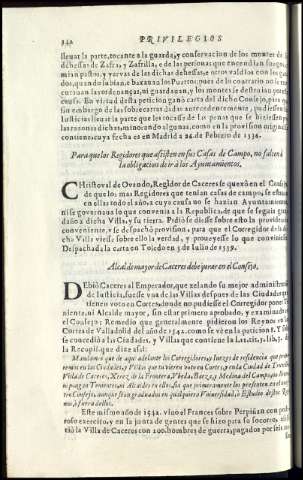 342 PRIVILEGIOS
lleuar la parte, tocante a la guarda, y conseruacion de los montes de las
dehessas de Zafra, y Zafrilla, e de las personas que encendian fuegos, co
mian pastos, y yeruas de las dichas dehessas, e otros valdios con los gana
dos, quando baxauan a los Puertos; pues de lo contrario no se
curauan las ordenanças, ni guardauan, y los montes se destruian por esta
causa. En virtud desta peticion ganò carta del dicho Consejo, para que
sin embargo de las sobrecartas dadas anteriormente, pudiessen las
Iusticias lleuar la parte que les tocasse de las penas, sin excederse
las razones dichas, mincendo algunas, como en la prouision original se
contiene, cuya fecha es en Madrid a 24. de Febrero de 1534.
Para que los Regidores que assisten en sus Casas de Campo, no falten à
la obligacion de ir à los Ayuntamientos.
CHristoual de Ouando, Regidor de Caceres se quexò en el Consejo
de que los mas Regidores que tenian casas de campo, se estauan
en ellas todo el año, a cuya causa no se hazian Ayuntamientos
ni se gouernaua lo que conuenia a la Republica, de que se seguia gran
daño a dicha Villa, y su tierra. Pidiò se diesse sobre ello la prouision
conueniente, y se despachò prouision, para que el Corregidor de la di
cha Villa viesse sobre ello la verdad, y proueyesse lo que conuiniesse.
Despachada la carta en Toledo en 3. de Iulio de 1539.
Alcalde mayor de Caceres debe jurar en el Consejo.
DEbiò Caceres al Emperador, que zelando su mejor administracion
de Iusticia, fuesse vna de las Villas despues de las Ciudades que
tienen voto en Cortes, donde no pudiesse el Corregidor poner Te
niente, ni Alcalde mayor, sin estar primero aprobado, y examinado en
el Consejo: Remedio que generalmente pidieron los Reynos en las
Cortes de Valladolid del año de 1542. como se vè en la peticion
se concediò a las Ciudades, y Villas que contiene la L. lib. 3. de
la Recopil. que dize assi:
Mandamos que de aqui adelante los Corregidores, y Iuezes de residencia que proueye
remos en las Ciudades, y Villas que tuvieren voto en Cortes, y en la Ciudad de Truxillo,
Villa de Caceres, Xerez de la Frontera, Vbeda, Baeça, y Medina del Campo, no
pongan Tenientes, ni Alcaldes en ellas, sin que primeramente los presenten en el nues
tro Consejo, aunque sean graduados en qualquiera Vniuersidad, ò Estudio destos Rey
nos, ò fuera dellos.
Este mismo año de 1542. vino el Frances sobre Perpiñan con pode
roso exercito, y en la junta de gentes que se hizo para su socorro, assis
tiò la Villa de Caceres con 200. hombres de guerra, pagados por seis me